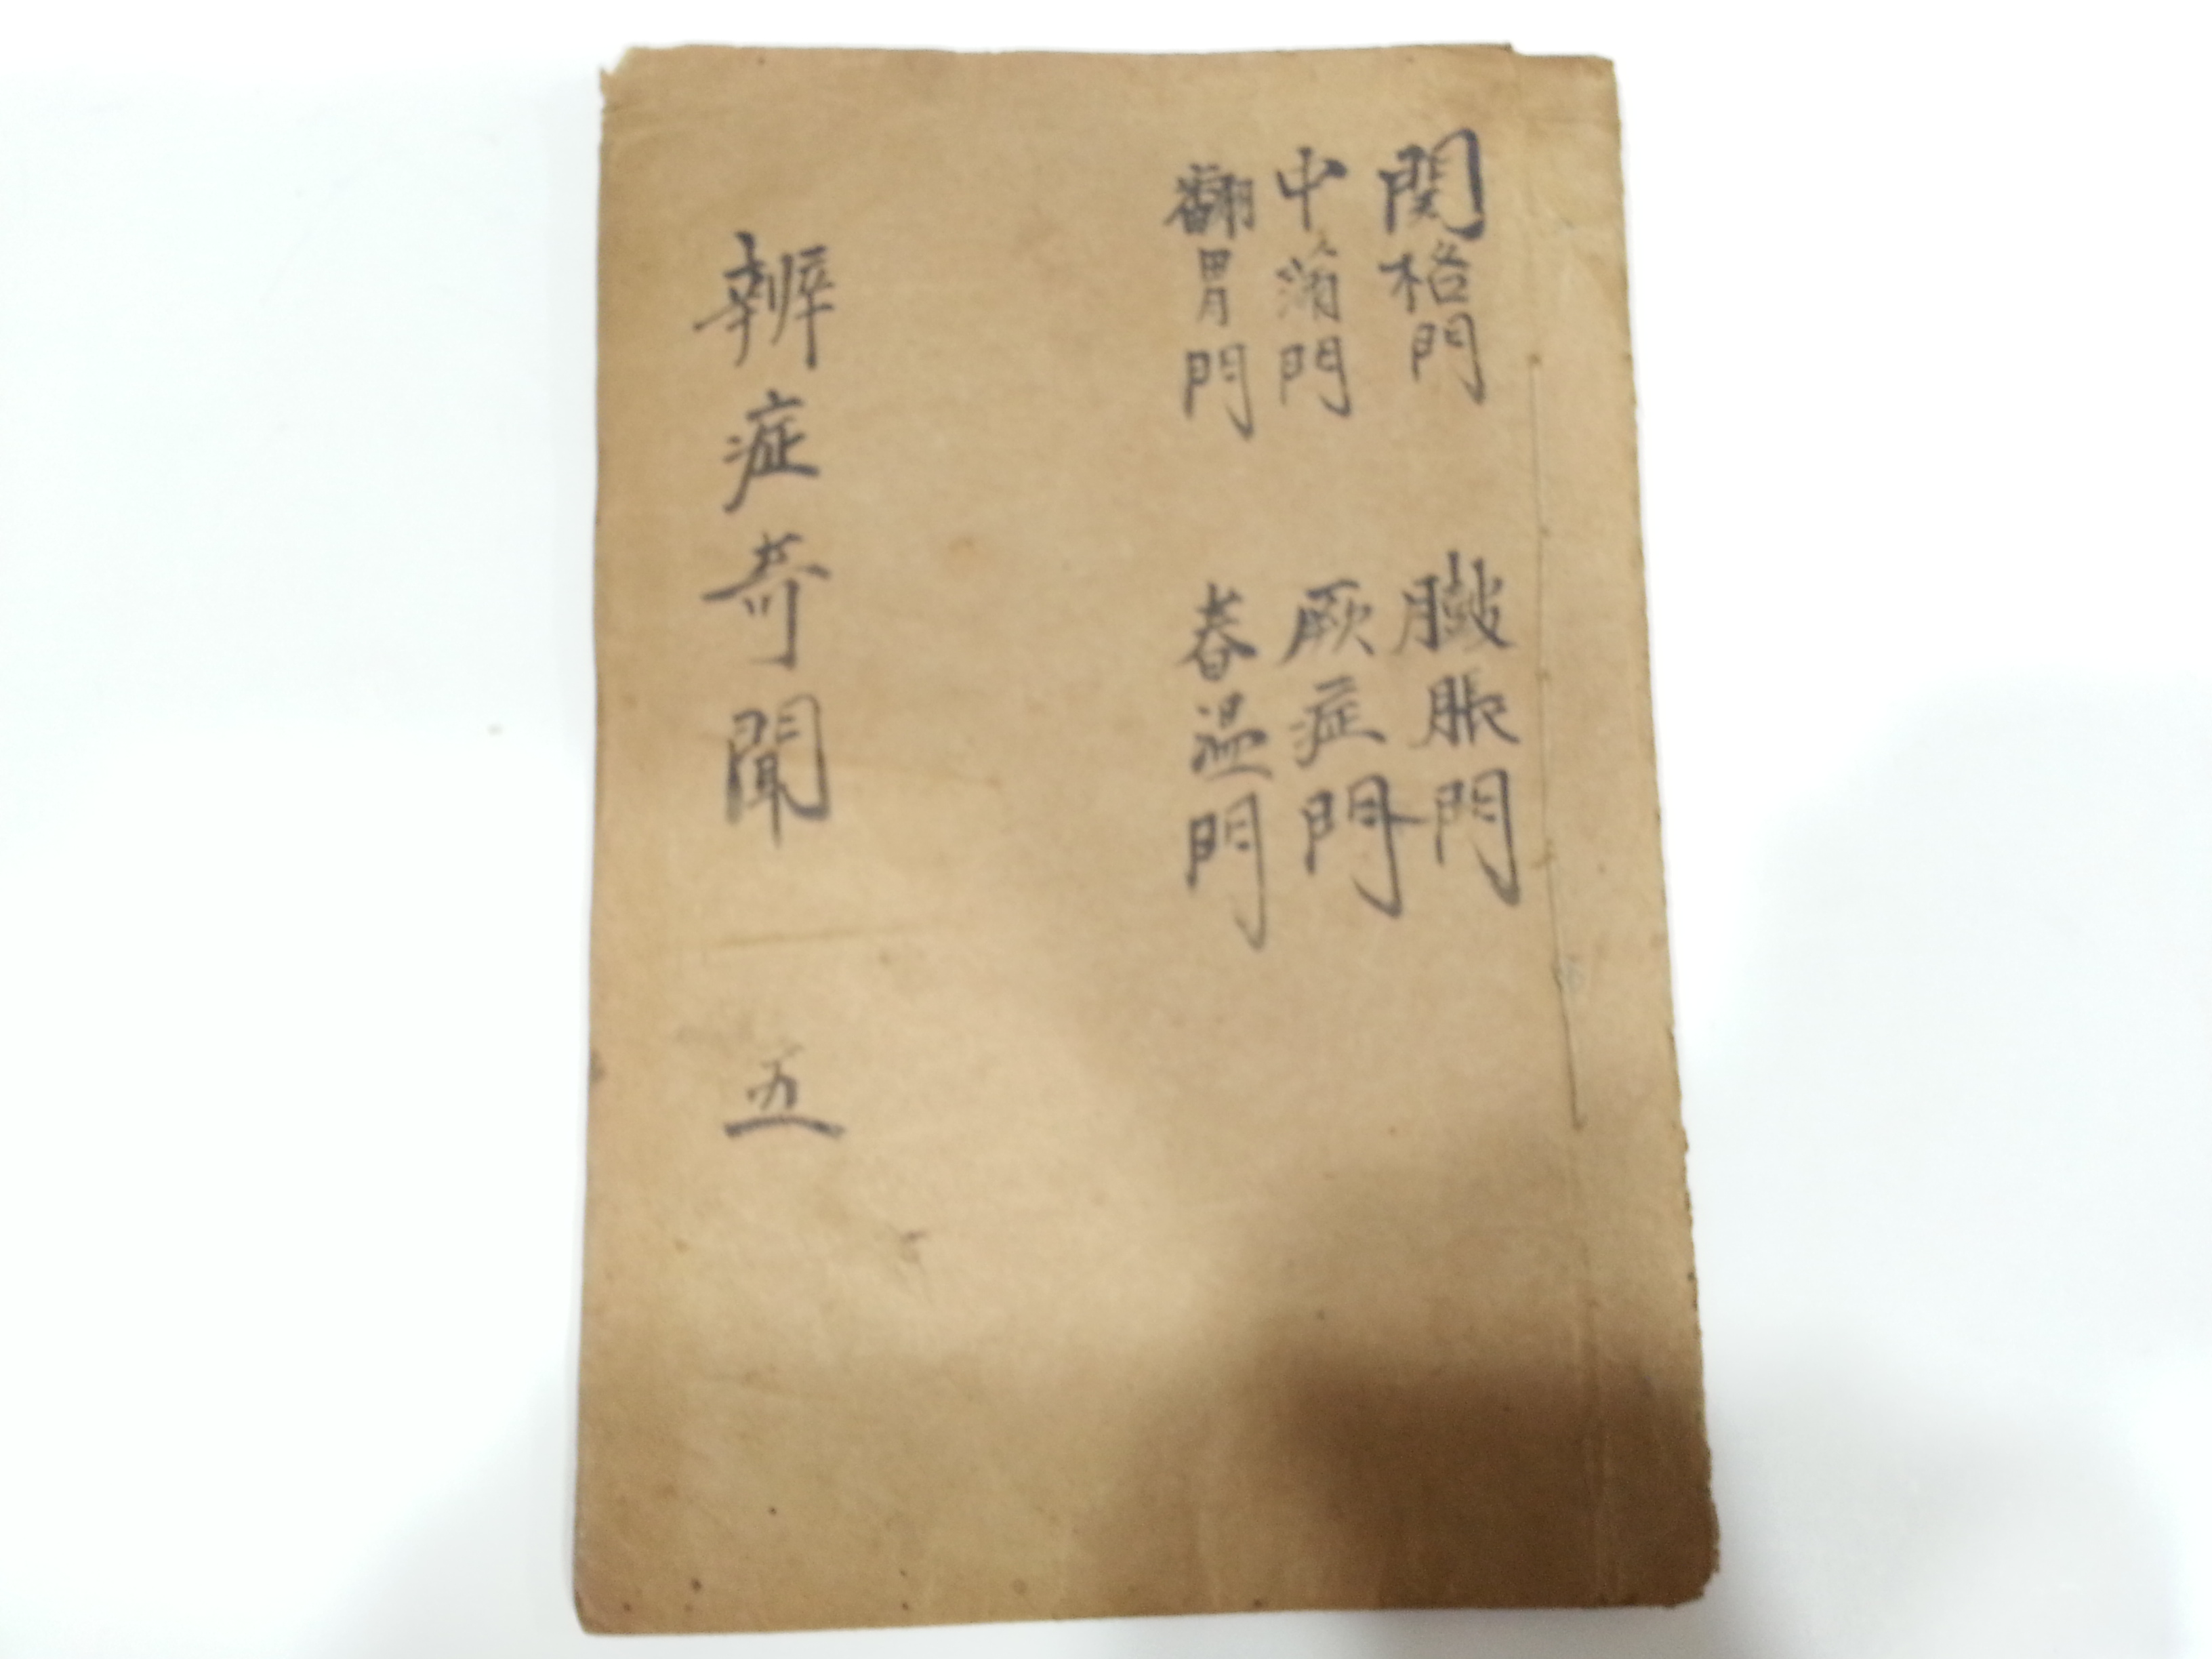 関格門
中满門
翻胃門
臌脹門
厥症門
春温門
辨症奇聞 五